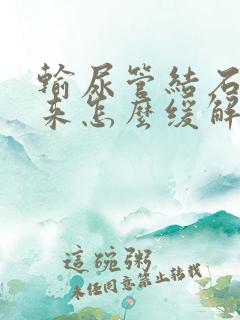 輸尿管結石
來怎麼緩解
這碗粥
未經同意禁止轉載